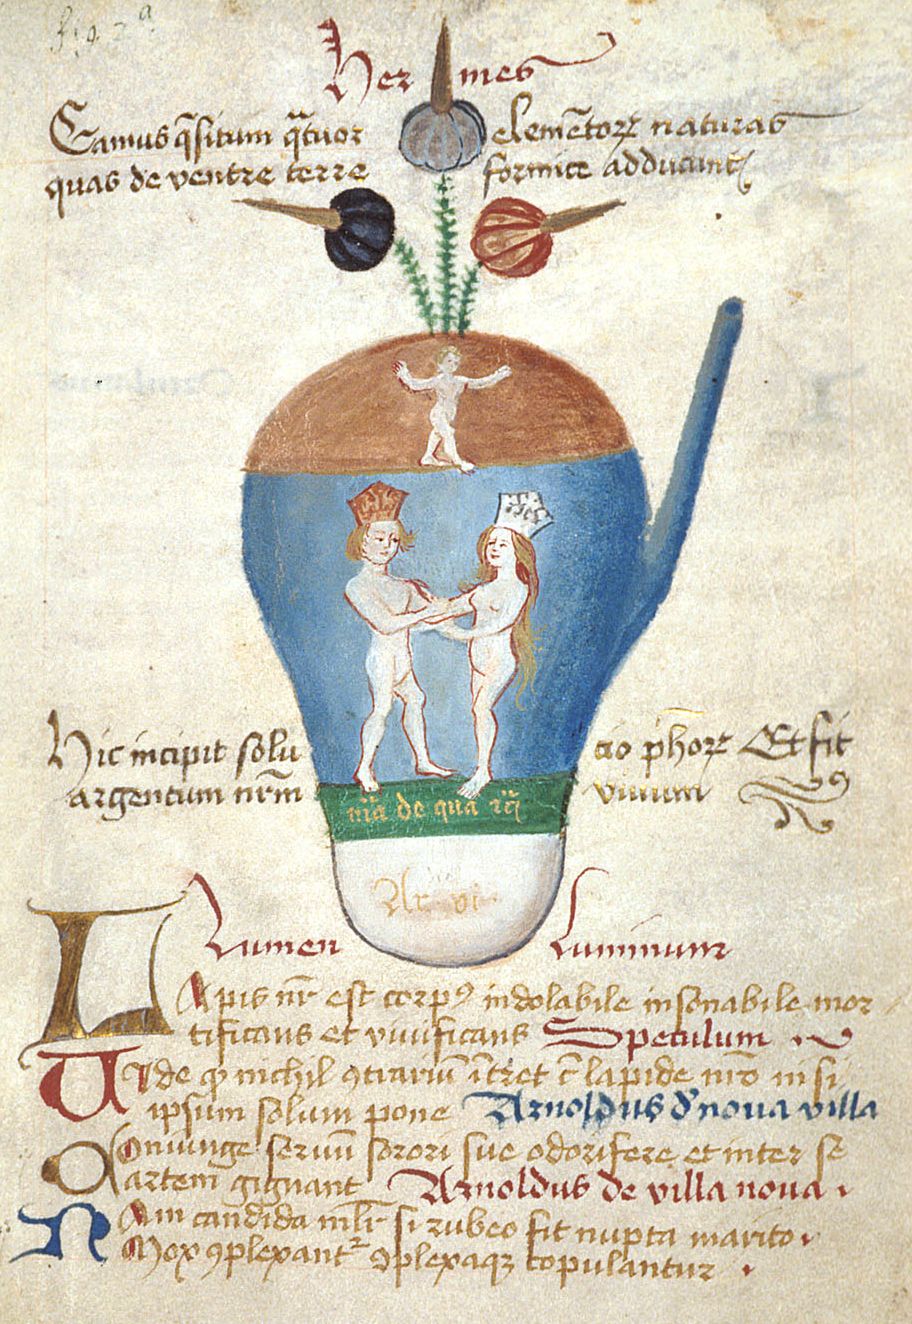 fig 2ª
Hermes
Eamus q̄situm q̄tuor elemētoꝝ naturas
quas de ventre terre formice adducunt
Hic incipit solucio ph̄oꝝ Et fit
argentum nr̄m vivum
mīa de qua
Ar vi
Lumen luminum
Lapis nr̄ est corpꝰ indolabile insonabile mor
tificans et vivificans Speculum
Vide qꝫ nichil ꝯtrariū īt̄ret ī lapide nr̄o nisi
ipsum solum pone Arnoldus d' nova villa
Coniunge servū sorori sue odorifere et inter se
artem gignant Arnoldus de villa nova
Nam candida ml̄r si rubeo fit nupta marito
Mox ꝯplexant ꝯplexaqꝫ copulantur